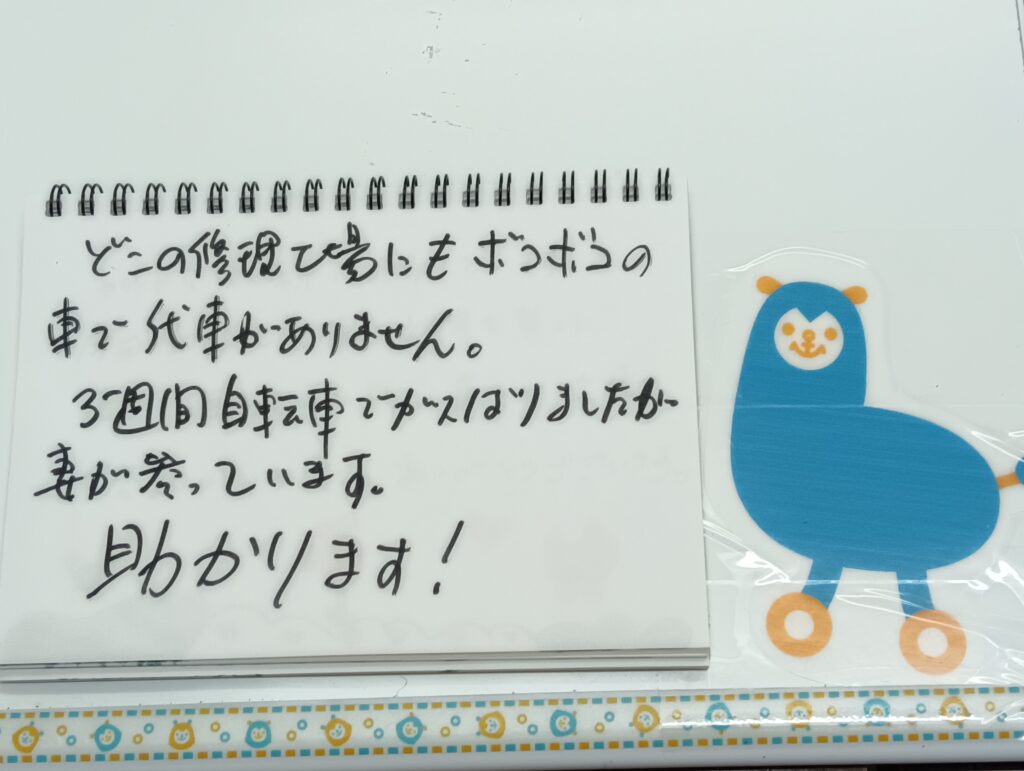 どこの修理工場にもボコボコの
車で代車がありません。
3週間自転車でがんばりましたが
妻が参っています。
助かります!